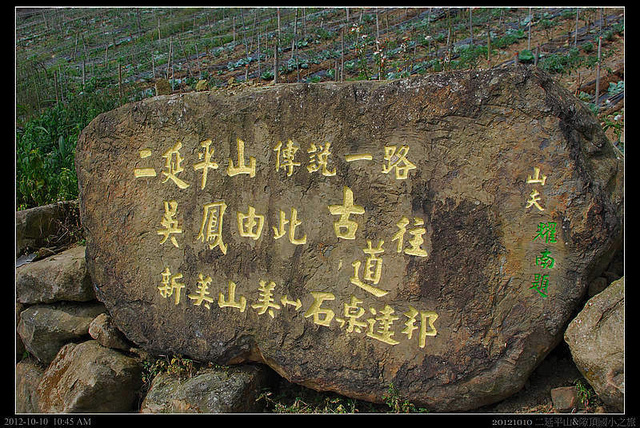 二延平山傳說一路
吳鳳由此古道往
新美山美↔石桌達邦
山夫
耀南題
2012-10-10 10:45 AM
20121010 二延平山&隙頂國小之旅